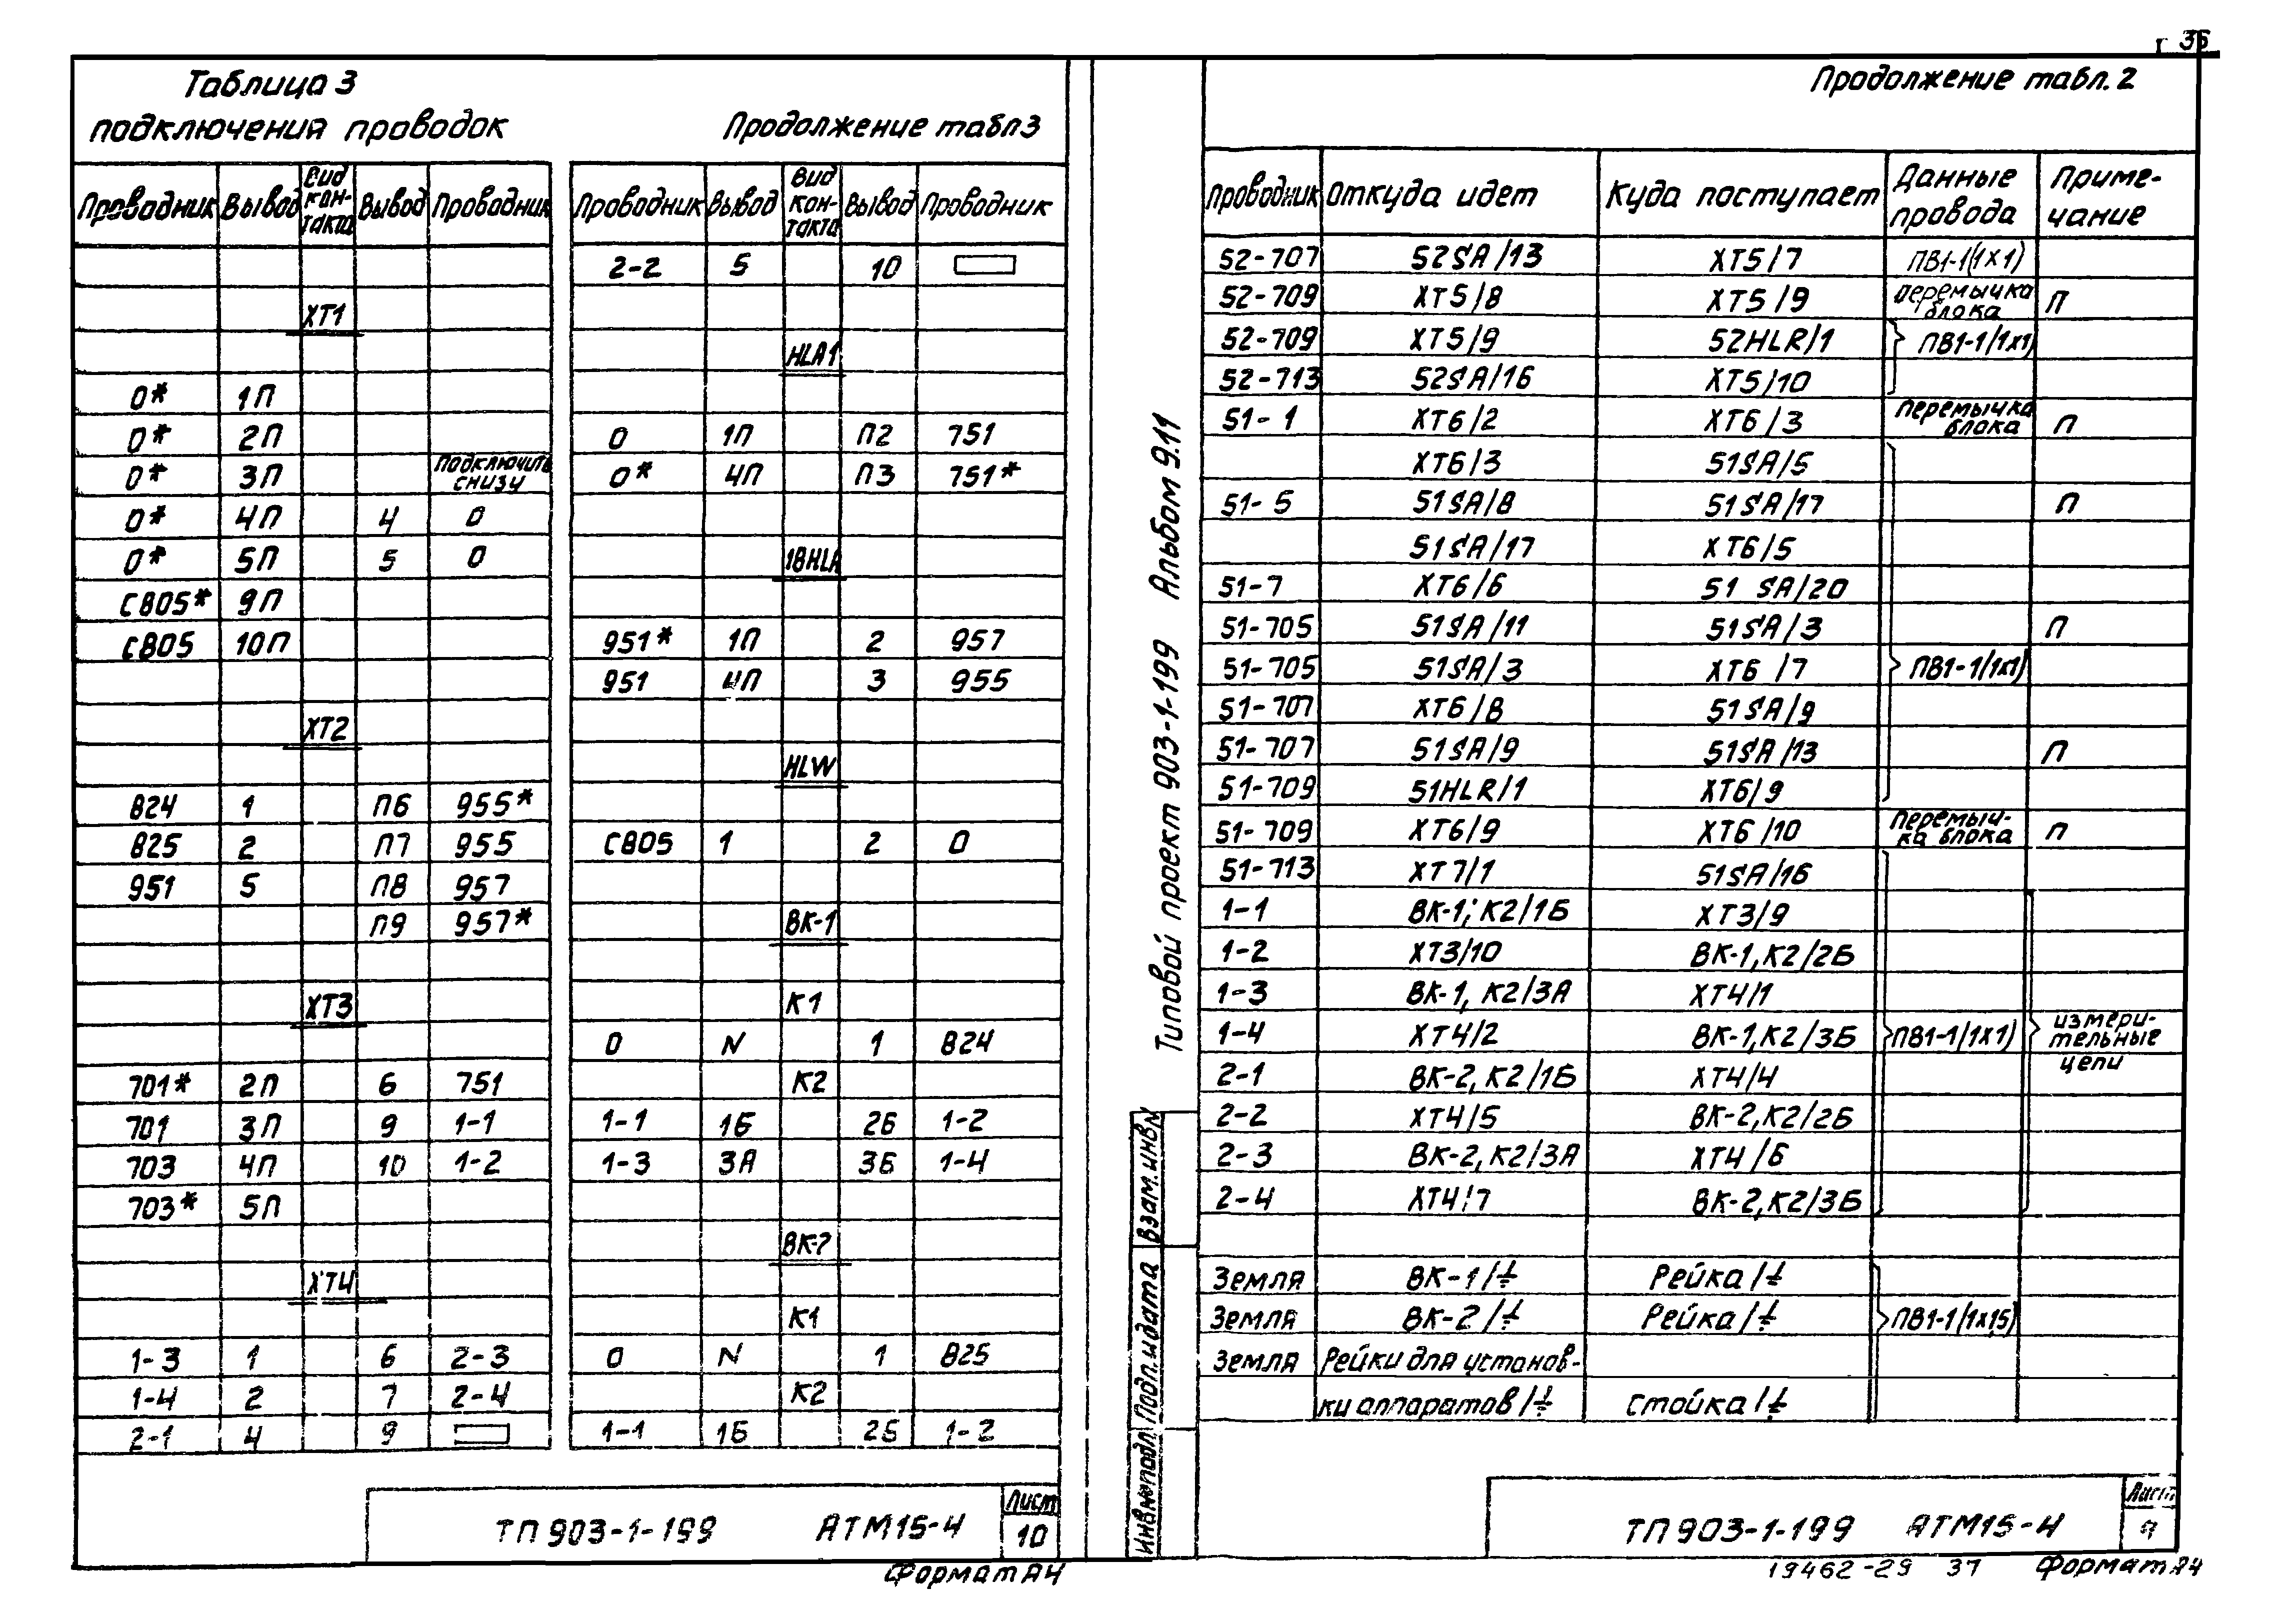 36
Таблица 3
подключения проводок
Проводник Вывод Вид контакта Вывод Проводник
ХТ1
0* 1П
0* 2П
0* 3П Подключить снизу
0* 4П 4 0
0* 5П 5 0
С805* 9П
С805 10П
ХТ2
824 1 П6 955*
825 2 П7 955
951 5 П8 957
П9 957*
ХТ3
701* 2П 6 751
701 3П 9 1-1
703 4П 10 1-2
703* 5П
ХТ4
1-3 1 6 2-3
1-4 2 7 2-4
2-1 4 9
Продолжение табл 3
Проводник Вывод Вид контакта Вывод Проводник
2-2 5 10
HLA1
0 1П П2 751
0* 4П П3 751*
18HLA
951* 1П 2 957
951 4П 3 955
HLW
С805 1 2 0
ВК-1
К1
0 N 1 824
К2
1-1 1Б 2Б 1-2
1-3 3А 3Б 1-4
ВК-2
К1
0 N 1 825
К2
1-1 1Б 2Б 1-2
ТП 903-1-199 АТМ15-4
Лист
10
Формат А4
Типовой проект 903-1-199 Альбом 9.11
Взам. инв N
Подп. и дата
Инв. № подл.
Продолжение табл. 2
Проводник Откуда идет Куда поступает Данные провода Примечание
52-707 52SA/13 ХТ5/7 ПВ1-1(1х1)
52-709 ХТ5/8 ХТ5/9 перемычка блока П
52-709 ХТ5/9 52HLR/1 ПВ1-1/1х1)
52-713 52SA/16 ХТ5/10
51-1 ХТ6/2 ХТ6/3 Перемычка блока П
ХТ6/3 51SA/5
51-5 51SA/8 51SA/17 П
51SA/17 ХТ6/5
51-7 ХТ6/6 51 SA/20
51-705 51SA/11 51SA/3 П
51-705 51SA/3 ХТ6/7 ПВ1-1/1х1)
51-707 ХТ6/8 51SA/9
51-707 51SA/9 51SA/13 П
51-709 51HLR/1 ХТ6/9
51-709 ХТ6/9 ХТ6/10 Перемыч-ка блока П
51-713 ХТ7/1 51SA/16
1-1 ВК-1; К2/1Б ХТ3/9
1-2 ХТ3/10 ВК-1, К2/2Б
1-3 ВК-1, К2/3А ХТ4/1
1-4 ХТ4/2 ВК-1, К2/3Б ПВ1-1/1х1) измери-тельные цепи
2-1 ВК-2, К2/1Б ХТ4/4
2-2 ХТ4/5 ВК-2, К2/2Б
2-3 ВК-2, К2/3А ХТ4/6
2-4 ХТ4/7 ВК-2, К2/3Б
Земля ВК-1/⏚ Рейка/⏚
Земля ВК-2/⏚ Рейка/⏚ ПВ1-1/1х1,5)
Земля Рейки для установ-
ки аппаратов/⏚ стойка/⏚
ТП 903-1-199 АТМ15-4
Лист
9
19462-29 37 Формат А4